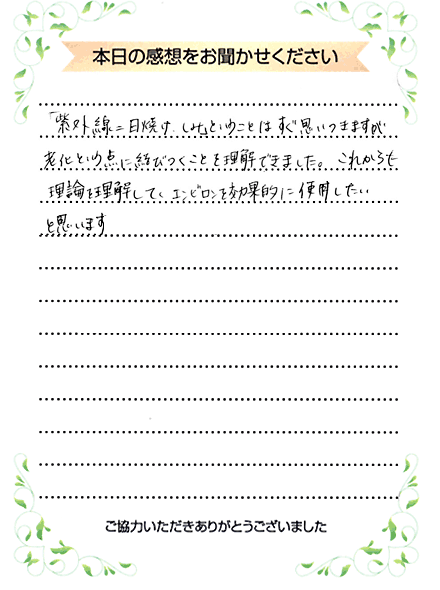 本日の感想をお聞かせください
「紫外線=日焼け、しみ」ということはすぐ思いつきますが
老化という点に結びつくことを理解できました。これからも
理論を理解して、エンビロンを効果的に使用したい
と思います
ご協力いただきありがとうございました